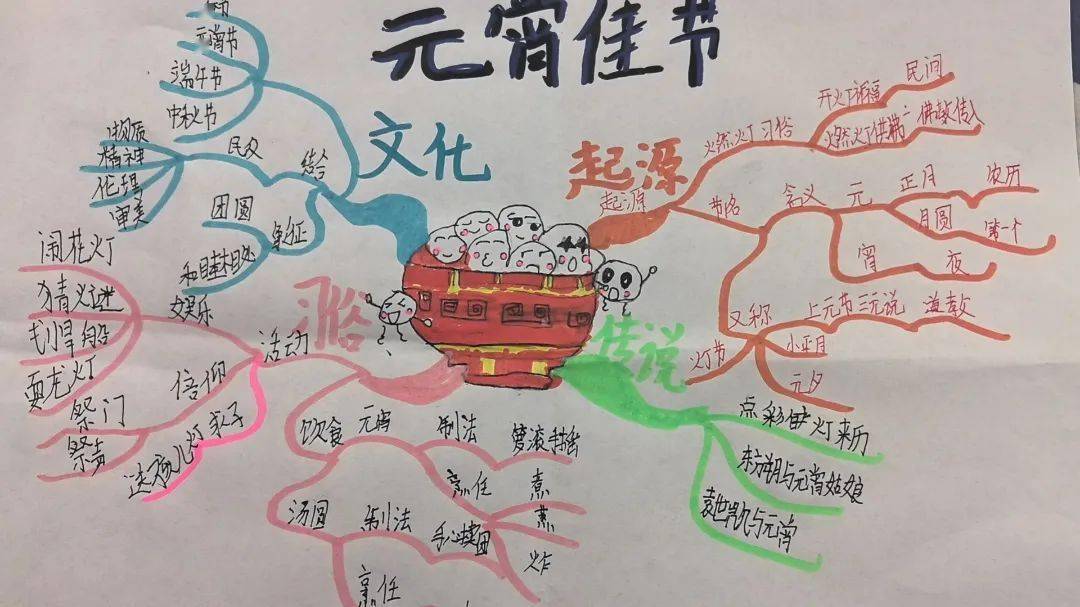 元宵佳节
文化
元宵节
端午节
中秋节
民文
结合
物质
精神
伦理
审美
团圆
象征
和睦相处
习俗
活动
娱乐
闹花灯
猜灯谜
划旱船
耍龙灯
信仰
祭门
求子
送孩儿灯
饮食
元宵
制法
箩滚手摇
烹饪
煮
蒸
炸
汤圆
制法
手心揉团
烹饪
起源
起源
燃灯习俗
开灯祈福
民间
燃灯供佛
佛教传入
节名
含义
元
正月
农历
月圆
第一个
宵
夜
又称
上元节
三元说
道教
小正月
元夕
灯节
传说
点彩灯来历
东方朔与元宵姑娘
袁世凯与元宵